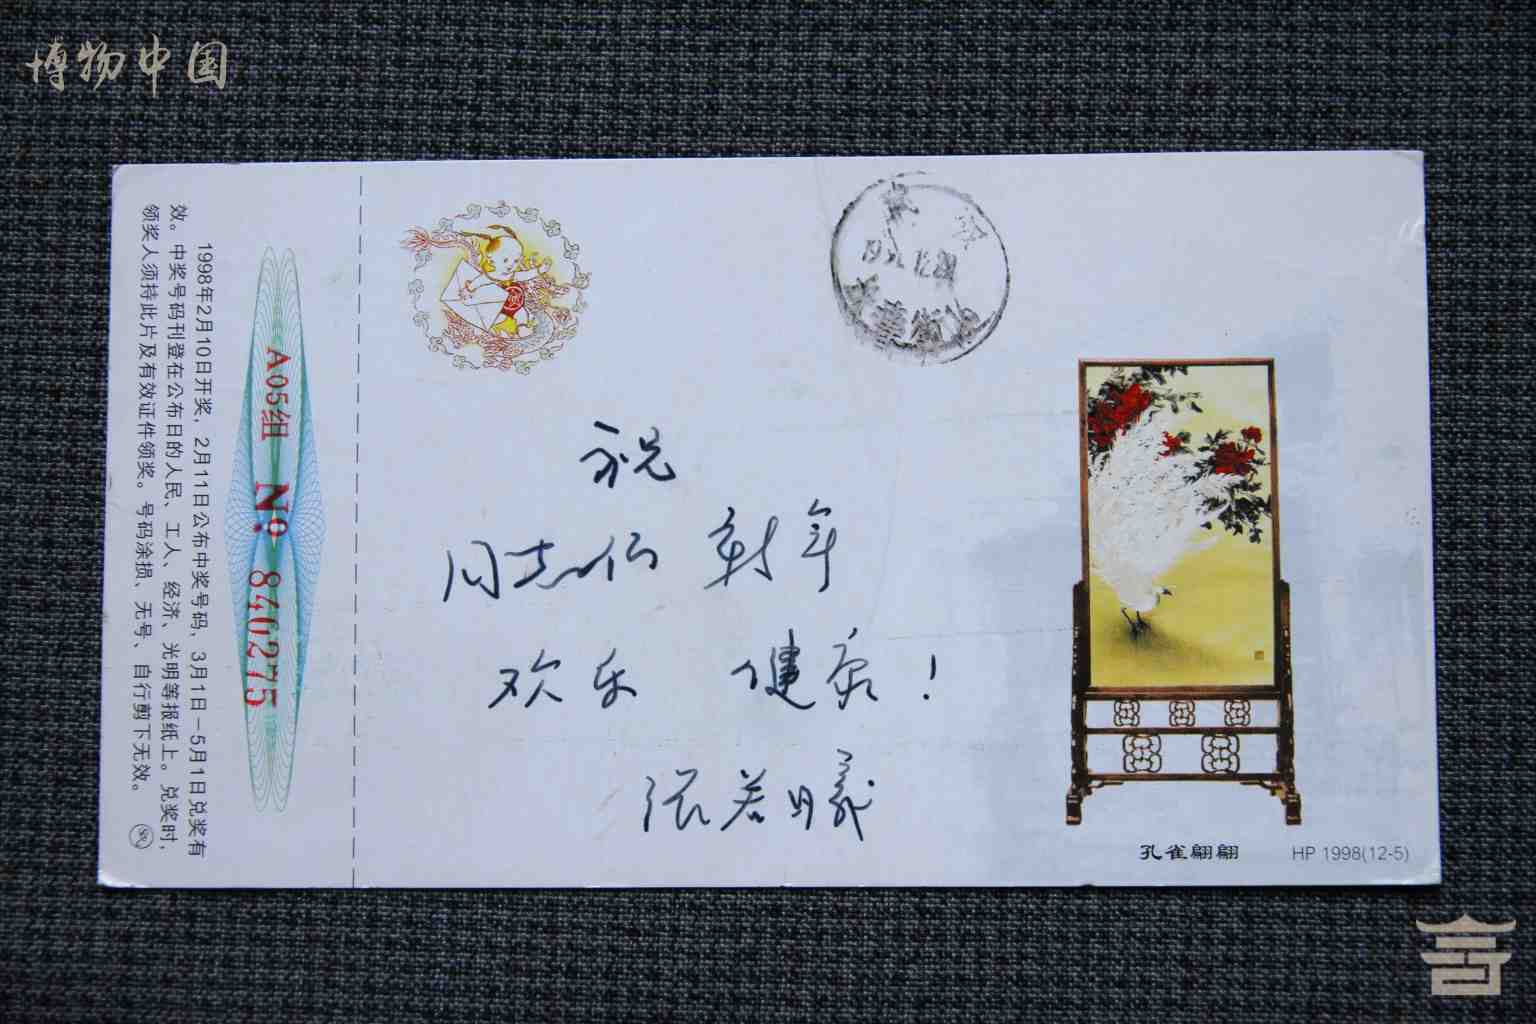 博物中国
1998年2月10日开奖，2月11日公布中奖号码，3月1日－5月1日兑奖有
效。中奖号码刊登在公布日的人民、工人、经济、光明等报纸上。兑奖时，
领奖人须持此片及有效证件领奖。号码涂损、无号、自行剪下无效。
A05组 Nº 840275
祝
同志们 新年
欢乐 健康！
张若曦
孔雀翩翩
HP 1998(12-5)